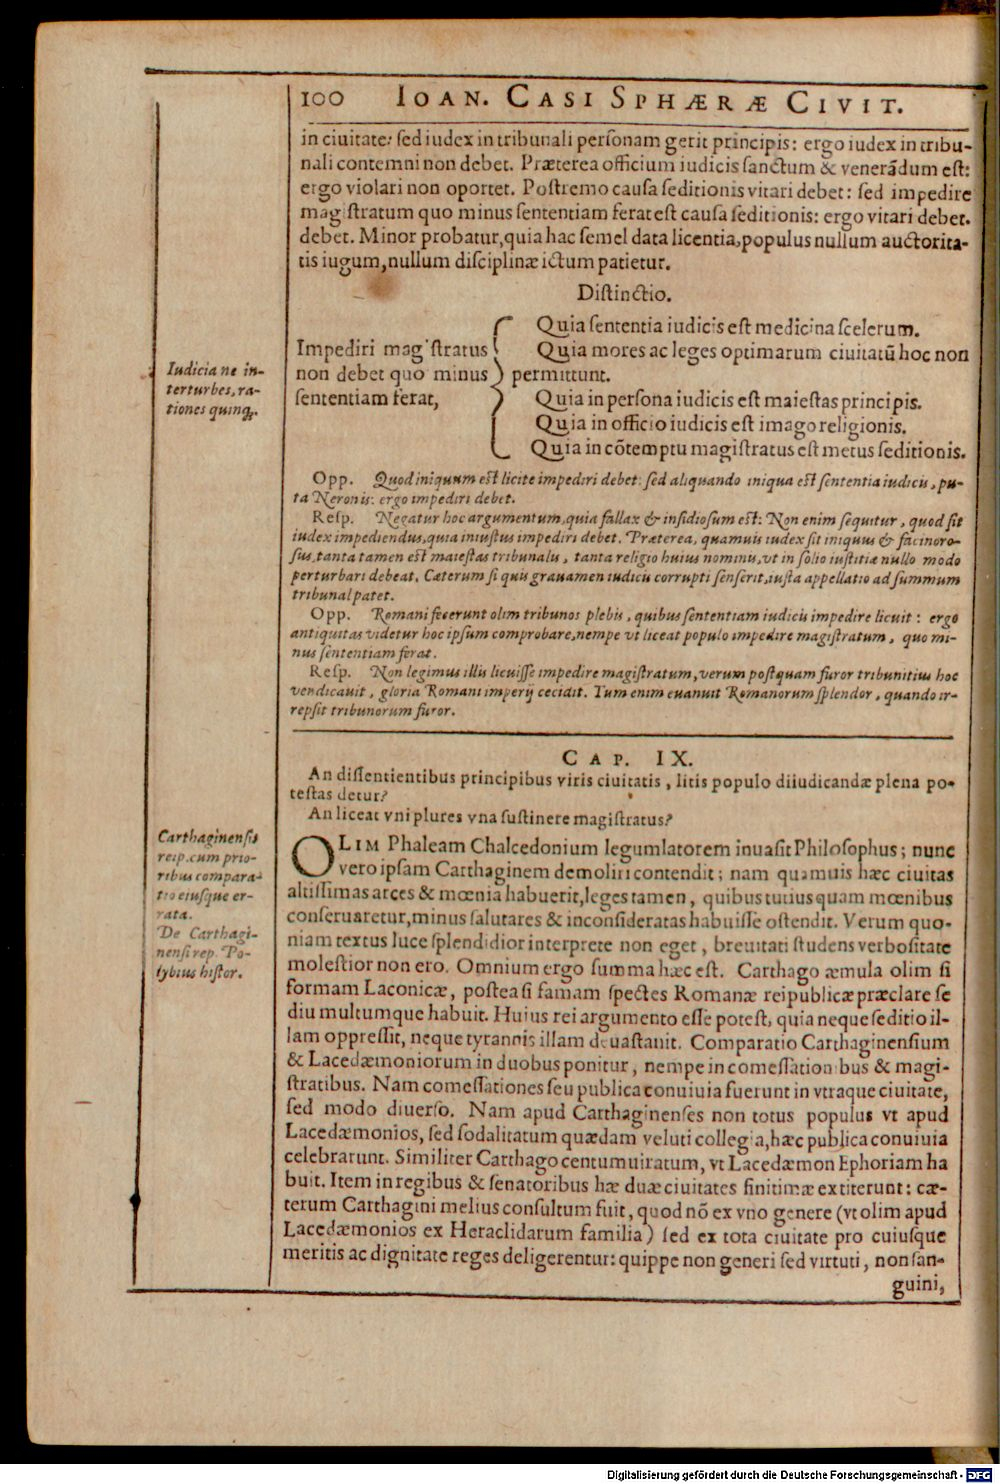 100 IOAN. CASI SPHÆRÆ CIVIT.
in ciuitate: sed iudex in tribunali personam gerit principis: ergo iudex in tribu-
nali contemni non debet. Præterea officium iudicis sanctum & venerãdum est:
ergo violari non oportet. Postremo causa seditionis vitari debet: sed impedire
magistratum quo minus sententiam ferat est causa seditionis: ergo vitari debet.
debet. Minor probatur, quia hac semel data licentia, populus nullum auctorita-
tis iugum, nullum disciplinæ ictum patietur.
Distinctio.
Iudicia ne in-
terturbes, ra-
tiones quinq;.
Impediri magistratus
non debet quo minus
sententiam ferat,
Quia sententia iudicis est medicina scelerum.
Quia mores ac leges optimarum ciuitatũ hoc non
permittunt.
Quia in persona iudicis est maiestas principis.
Quia in officio iudicis est imago religionis.
Quia in cõtemptu magistratus est metus seditionis.
Opp. Quod iniquum est licite impediri debet: sed aliquando iniqua est sententia iudicis, pu-
ta Neronis: ergo impediri debet.
Resp. Negatur hoc argumentum, quia fallax & insidiosum est: Non enim sequitur, quod sit
iudex impediendus, quia iniustus impediri debet. Præterea, quamuis iudex sit iniquus & facinoro-
sus, tanta tamen est maiestas tribunalis, tanta religio huius nominis, vt in solio iustitiæ nullo modo
perturbari debeat. Cæterum si quis grauamen iudicis corrupti senserit, iusta appellatio ad summum
tribunal patet.
Opp. Romani fecerunt olim tribunos plebis, quibus sententiam iudicis impedire licuit: ergo
antiquitas videtur hoc ipsum comprobare, nempe vt liceat populo impedire magistratum, quo mi-
nus sententiam ferat.
Resp. Non legimus illis licuisse impedire magistratum, verum postquam furor tribunitius hoc
vendicauit, gloria Romani imperij cecidit. Tum enim euanuit Romanorum splendor, quando ir-
repsit tribunorum furor.
CAP. IX.
An dissentientibus principibus viris ciuitatis, litis populo diiudicandæ plena po-
testas detur?
An liceat vni plures vna sustinere magistratus?
Carthaginensis
reip. cum prio-
ribus compara-
tio eiusque er-
rata.
De Carthagi-
nensi rep. Po-
lybius histor.
OLIM Phaleam Chalcedonium legumlatorem inuasit Philosophus; nunc
vero ipsam Carthaginem demoliri contendit; nam quamuis hæc ciuitas
altissimas arces & mœnia habuerit, leges tamen, quibus tutius quam mœnibus
conseruaretur, minus salutares & inconsideratas habuisse ostendit. Verum quo-
niam textus luce splendidior interprete non eget, breuitati studens verbositate
molestior non ero. Omnium ergo summa hæc est. Carthago æmula olim si
formam Laconicæ, postea si famam spectes Romanæ reipublicæ præclare se
diu multumque habuit. Huius rei argumento esse potest, quia neque seditio il-
lam oppressit, neque tyrannis illam deuastauit. Comparatio Carthaginensium
& Lacedæmoniorum in duobus ponitur, nempe in comessationibus & magi-
stratibus. Nam comessationes seu publica conuiuia fuerunt in vtraque ciuitate,
sed modo diuerso. Nam apud Carthaginenses non totus populus vt apud
Lacedæmonios, sed sodalitatum quædam veluti collegia, hæc publica conuiuia
celebrarunt. Similiter Carthago centumuiratum, vt Lacedæmon Ephoriam ha
buit. Item in regibus & senatoribus hæ duæ ciuitates finitimæ extiterunt: cæ-
terum Carthagini melius consultum fuit, quod nõ ex vno genere (vt olim apud
Lacedæmonios ex Heraclidarum familia) sed ex tota ciuitate pro cuiusque
meritis ac dignitate reges deligerentur: quippe non generi sed virtuti, non san-
guini,
Digitalisierung gefördert durch die Deutsche Forschungsgemeinschaft - DFG